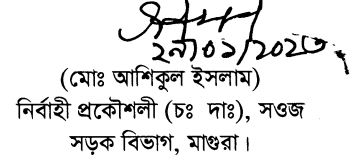 ২৯/০১/২০২৩
(মোঃ আশিকুল ইসলাম)
নির্বাহী প্রকৌশলী (চঃ দাঃ), সওজ
সড়ক বিভাগ, মাগুরা।